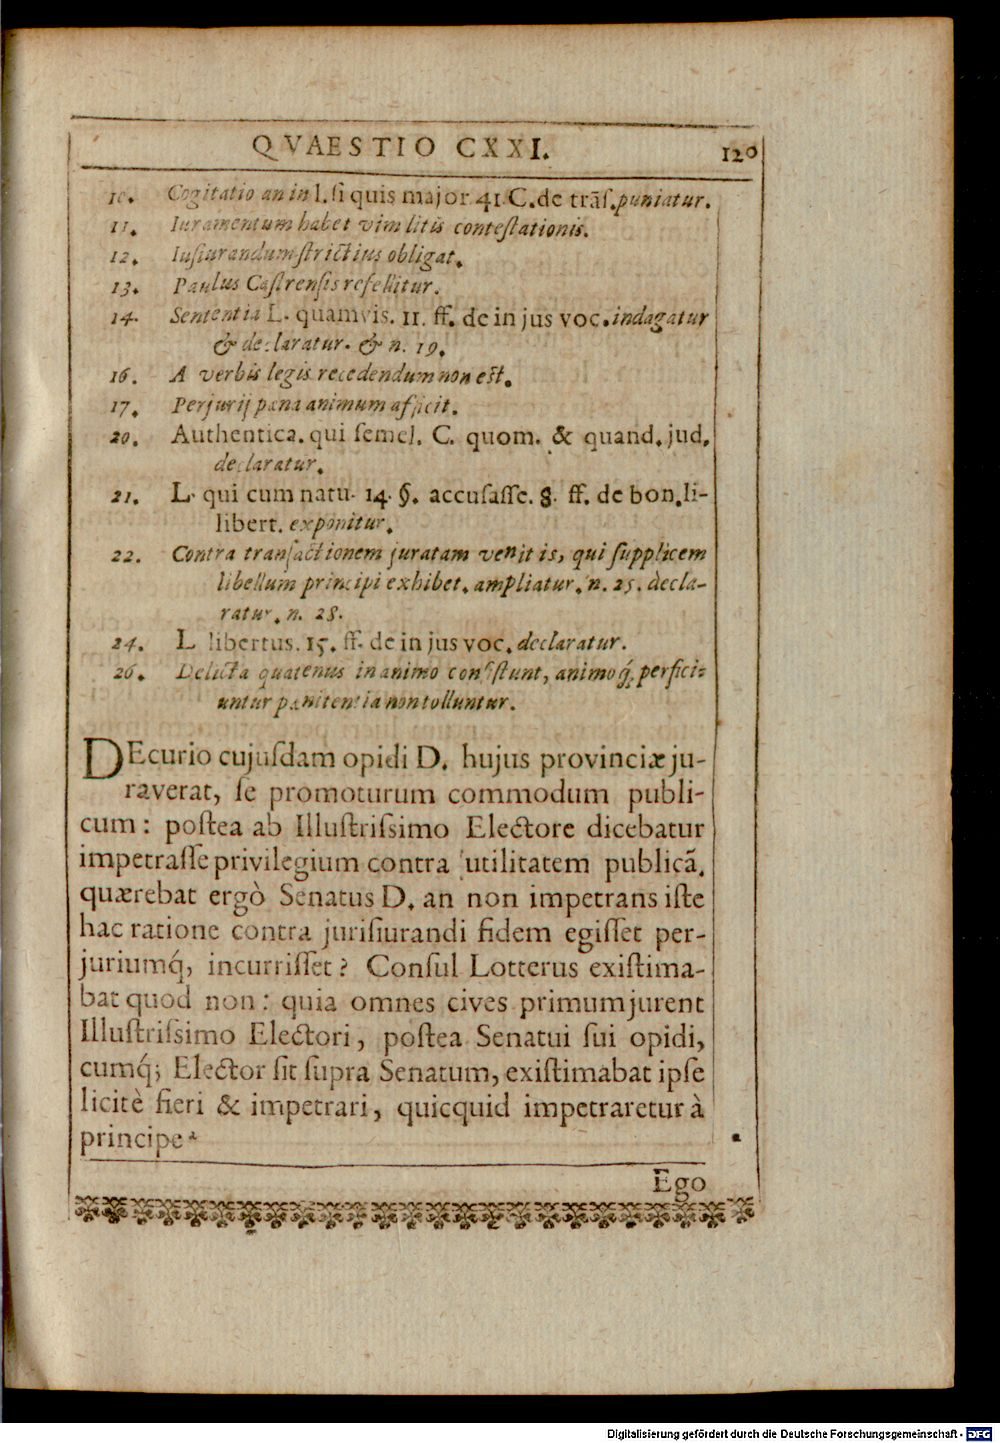 QVAESTIO CXXI. 120
10. Cogitatio an in l. si quis major 41 C. de trãs. puniatur.
11. Iuramentum habet vim litis contestationis.
12. Iusiurandum strictius obligat.
13. Paulus Castrensis refellitur.
14. Sententia L. quamvis. 11. ff. de in jus voc. indagatur
& declaratur. & n. 19.
16. A verbis legis recedendum non est.
17. Perjurij pæna animum afficit.
20. Authentica. qui semel. C. quom. & quand. jud.
declaratur.
21. L. qui cum natu. 14. §. accusasse. 8. ff. de bon. li-
libert. exponitur.
22. Contra transactionem juratam venit is, qui supplicem
libellum principi exhibet. ampliatur. n. 25. decla-
ratur. n. 28.
24. L libertus. 15. ff. de in jus voc. declaratur.
26. Delicta quatenus in animo consistunt, animoq́; perfici-
untur pænitentia non tolluntur.
DEcurio cujusdam opidi D. hujus provinciæ ju-
raverat, se promoturum commodum publi-
cum: postea ab Illustrissimo Electore dicebatur
impetrasse privilegium contra utilitatem publicã.
quærebat ergò Senatus D. an non impetrans iste
hac ratione contra jurisiurandi fidem egisset per-
juriumq́, incurrisset? Consul Lotterus existima-
bat quod non: quia omnes cives primum jurent
Illustrissimo Electori, postea Senatui sui opidi,
cumq́; Elector sit supra Senatum, existimabat ipse
licitè fieri & impetrari, quicquid impetraretur à
principe a
a
Ego
Digitalisierung gefördert durch die Deutsche Forschungsgemeinschaft - DFG